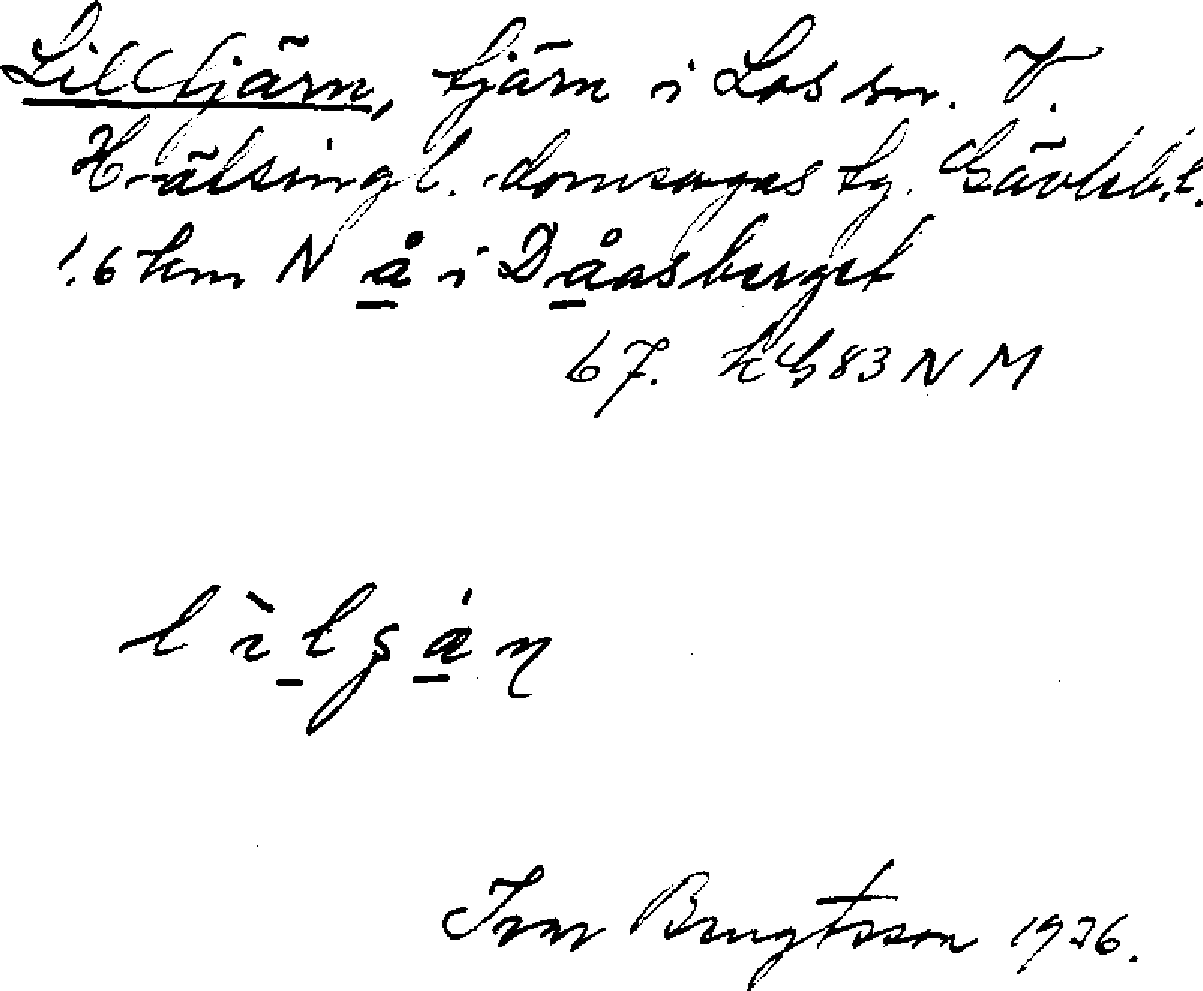 Lilltjärn, tjärn i Los sn. V.
Hälsingl. domsagas tg. Gävleb.l.
1.6 km N å i Dåasberget
67. 83 N M
Ivar Bengtsson 1936.